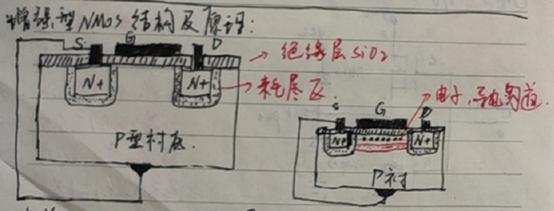 增强型NMOS结构及原理:
S G D
绝缘层SiO2
N+ N+
耗尽区
P型衬底.
电子,导电沟道.
S G D
N+ N+
P衬